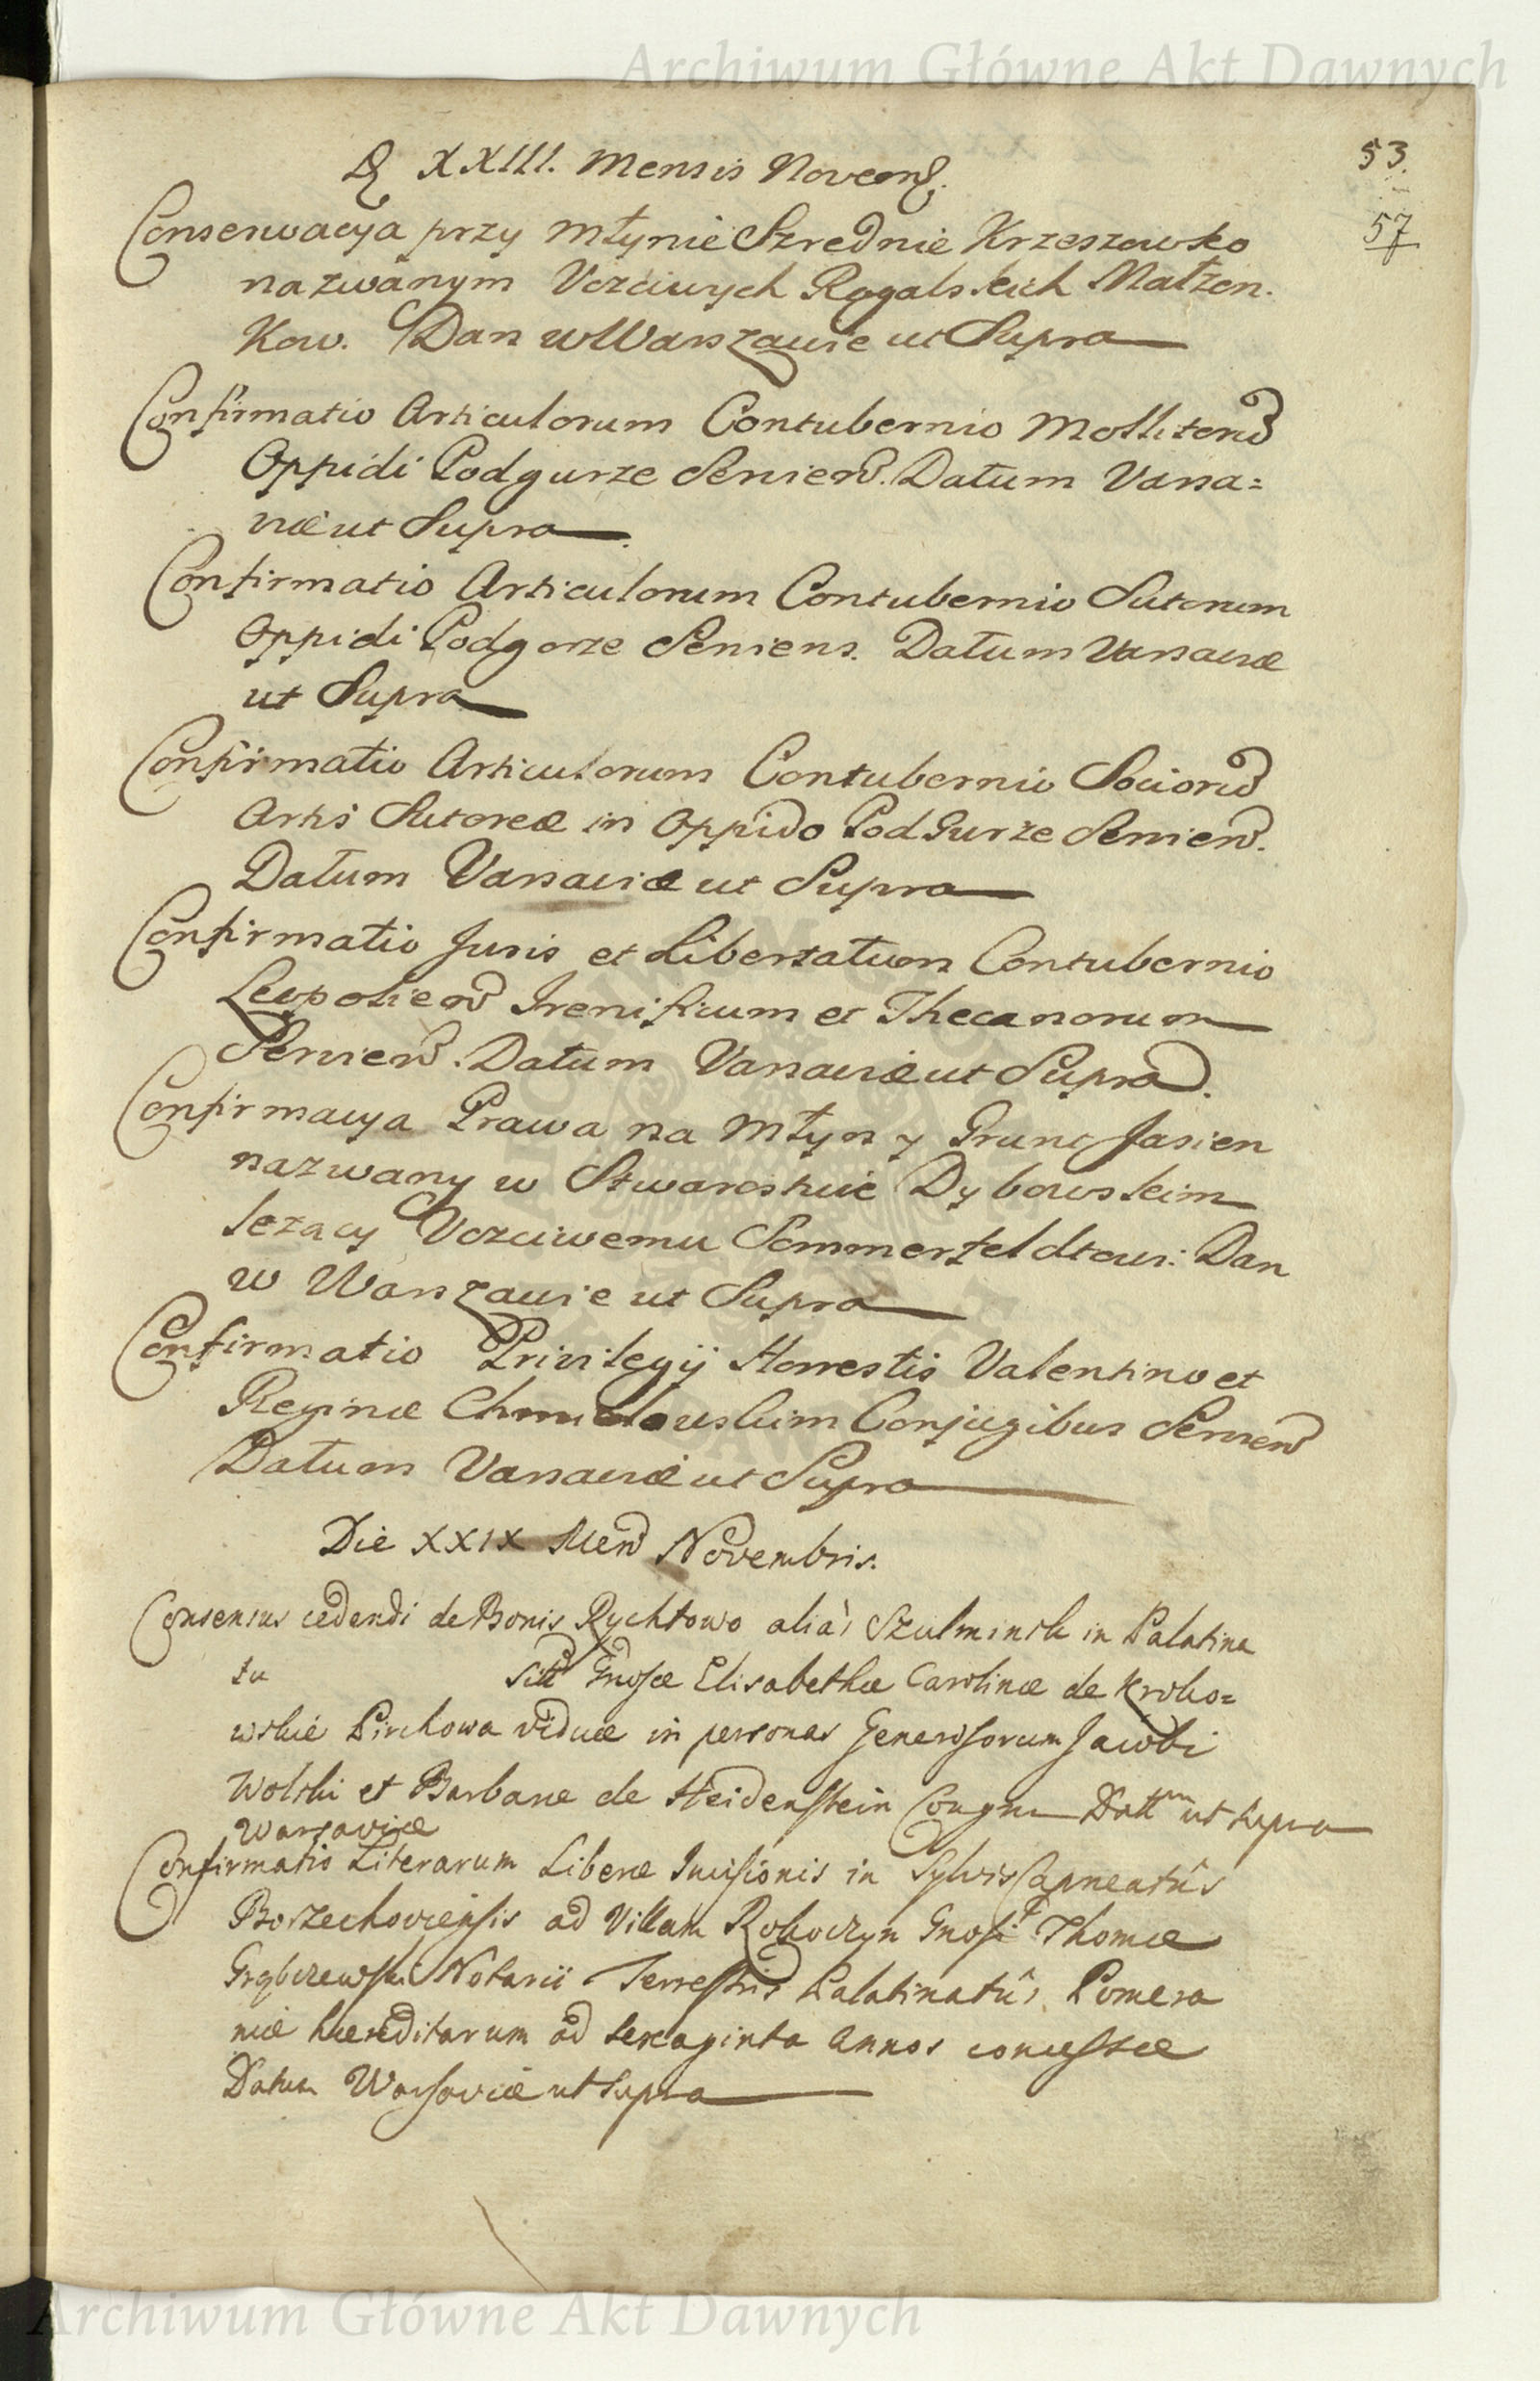 Archiwum Główne Akt Dawnych
53.
57
D. XXIII. Mensis Novemb.
Conserwacya przy Młynie Szrednie Krzeszewsko
nazwanym Vczciwych Rogalskich Małzon.
kow. Dan w Warszawie ut Supra
Confirmatio Articulorum Contubernio Mollitorũ
Oppidi Podgurze Servieñ. Datum Varsa=
viæ ut Supra
Confirmatio Articulorum Contubernio Sutorum
Oppidi Podgorze Serviens. Datum Varsaviæ
ut Supra
Confirmatio Articulorum Contubernio Sociorũ
Artis Sutoreæ in Oppido PodGurze Servieñ.
Datum Varsaviæ ut Supra
Confirmatio Juris et Libertatum Contubernio
Leopolieñ Frenificum et Thecanorum
Servieñ. Datum Varsaviæ ut Supra.
Confirmacya Prawa na Młyn y Grunt Jasien
nazwany w Starostwie Dybowskim
lezacy Vczciwemu Sommerfeldtowi. Dan
w Warszawie ut Supra
Confirmatio Privilegij Honestis Valentino et
Reginæ Chmielowskim Conjugibus Servieñ
Datum Varsaviæ ut Supra
Die XXIX Meñ Novembris.
Consensus cedendi de Bonis Rychtowo aliàs Szulminek in Palatina
tu sitt Gnosæ Elisabethæ Carolinæ de Kroko=
wskie Pirchowa viduæ in personas Generosorum Jacobi
Wolski et Barbaræ de Heidenstein Conjgum Dattum ut supra
Warsaviæ
Confirmatio Literarum Liberæ Incisionis in Sylvis Capneatûs
Borzechoviensis ad Villam Rokoczyn Gnosi Thomæ
Grąbczewski Notarii Terrestris Palatinatûs Pomera
niæ hæreditarum ad sexaginta annos concessæ
Datum Warsaviæ ut supra
Archiwum Główne Akt Dawnych